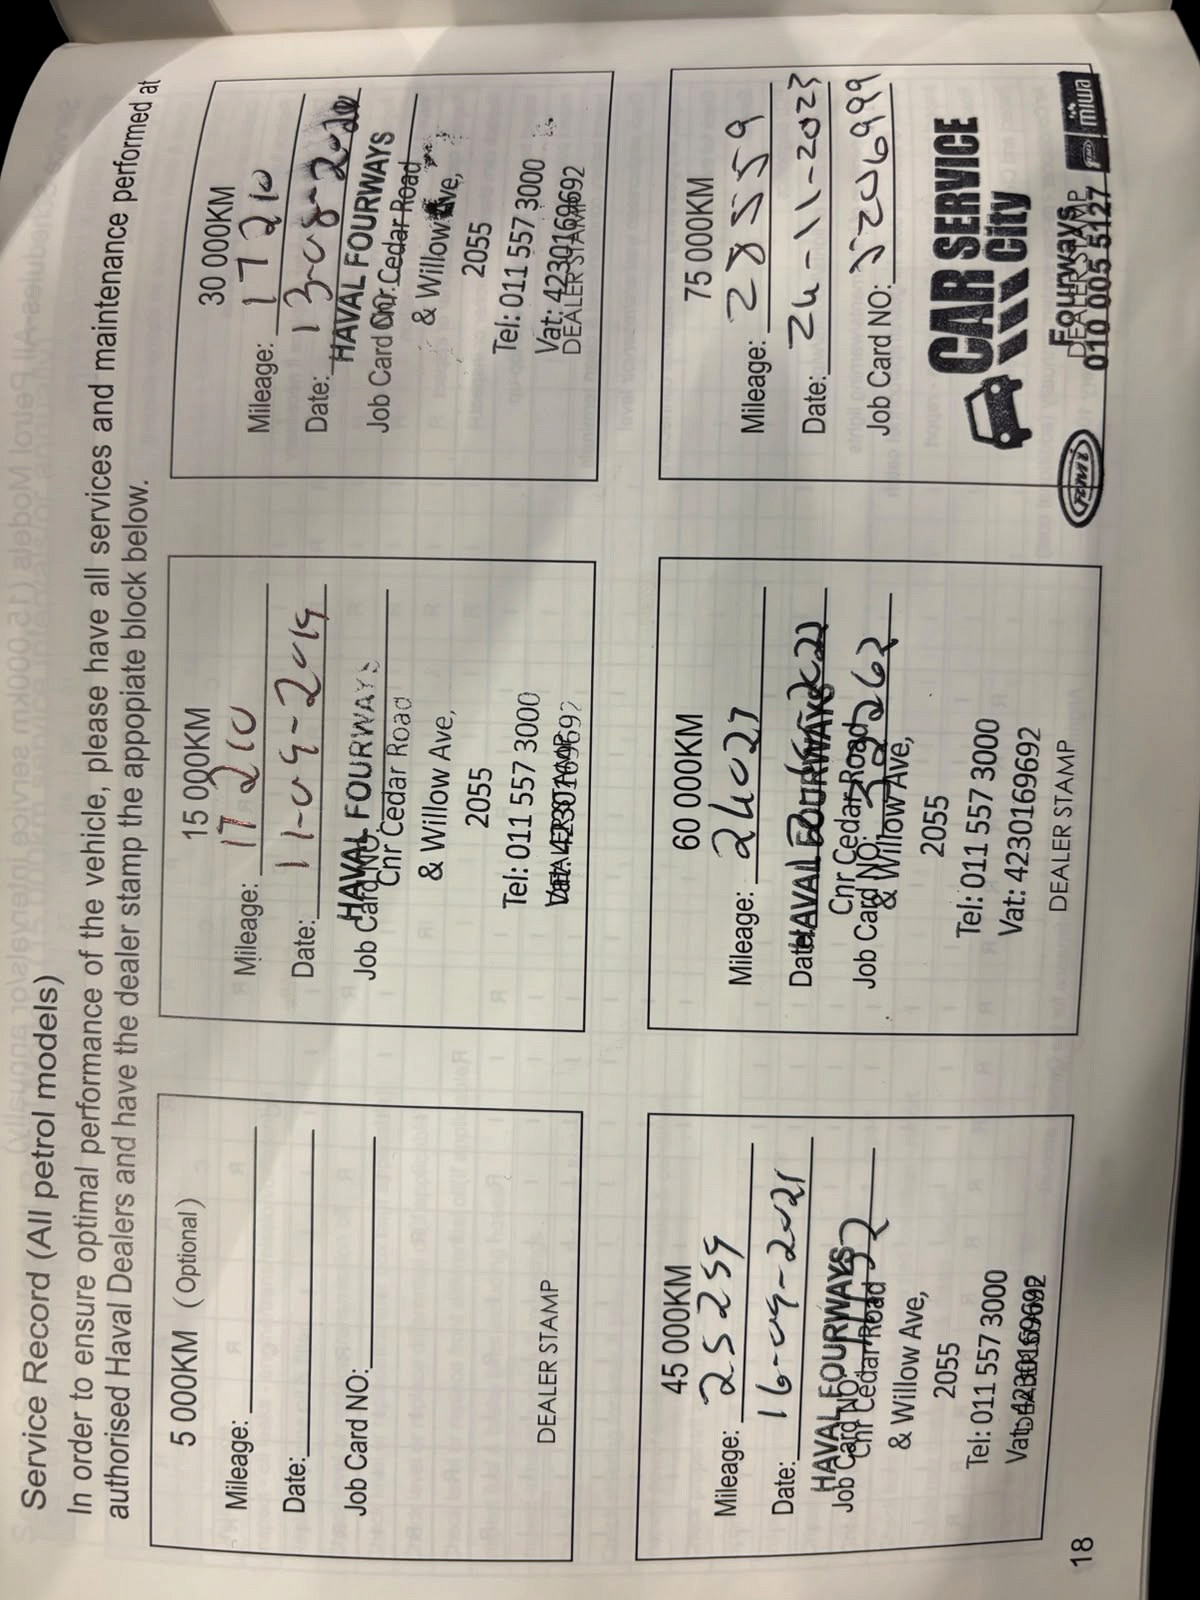 Service Record (All petrol models)
In order to ensure optimal performance of the vehicle, please have all services and maintenance performed at
authorised Haval Dealers and have the dealer stamp the appopiate block below.
5 000KM (Optional)
Mileage:
Date:
Job Card NO:
DEALER STAMP
15 000KM
Mileage: 17210
Date: 11-09-2019
HAVAL FOURWAYS
Job Card NO:
Cnr Cedar Road
& Willow Ave,
2055
Tel: 011 557 3000
Vat: 4230169692
DEALER STAMP
30 000KM
Mileage: 17210
Date: 13-08-2020
HAVAL FOURWAYS
Job Card NO:
Cnr Cedar Road
& Willow Ave,
2055
Tel: 011 557 3000
Vat: 4230169692
DEALER STAMP
45 000KM
Mileage: 25259
Date: 16-09-2021
HAVAL FOURWAYS
Job Card NO:
Cnr Cedar Road
& Willow Ave,
2055
Tel: 011 557 3000
Vat: 4230169692
DEALER STAMP
60 000KM
Mileage: 24027
Date:
HAVAL FOURWAYS
Cnr Cedar Road
Job Card NO:
& Willow Ave,
2055
Tel: 011 557 3000
Vat: 4230169692
DEALER STAMP
75 000KM
Mileage: 28559
Date: 24-11-2023
Job Card NO: J206999
CAR SERVICE
City
Fourways
DEALER STAMP
010 005 5127
miwa
18